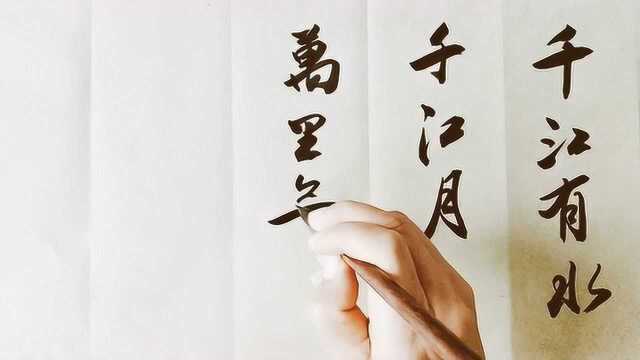 千江有水
千江月
萬里